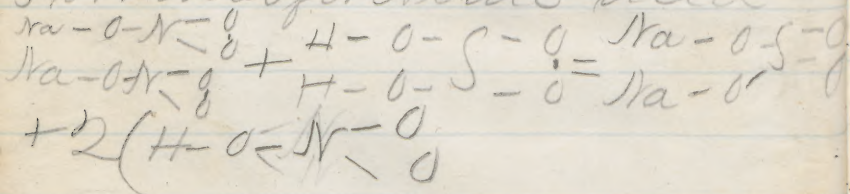 Na-O-N=O
O
+ H-O-S-O = Na-O-S=O
Na-O-N=O
O
H-O- -O
Na-O =O
+2(H-O-N=O
O